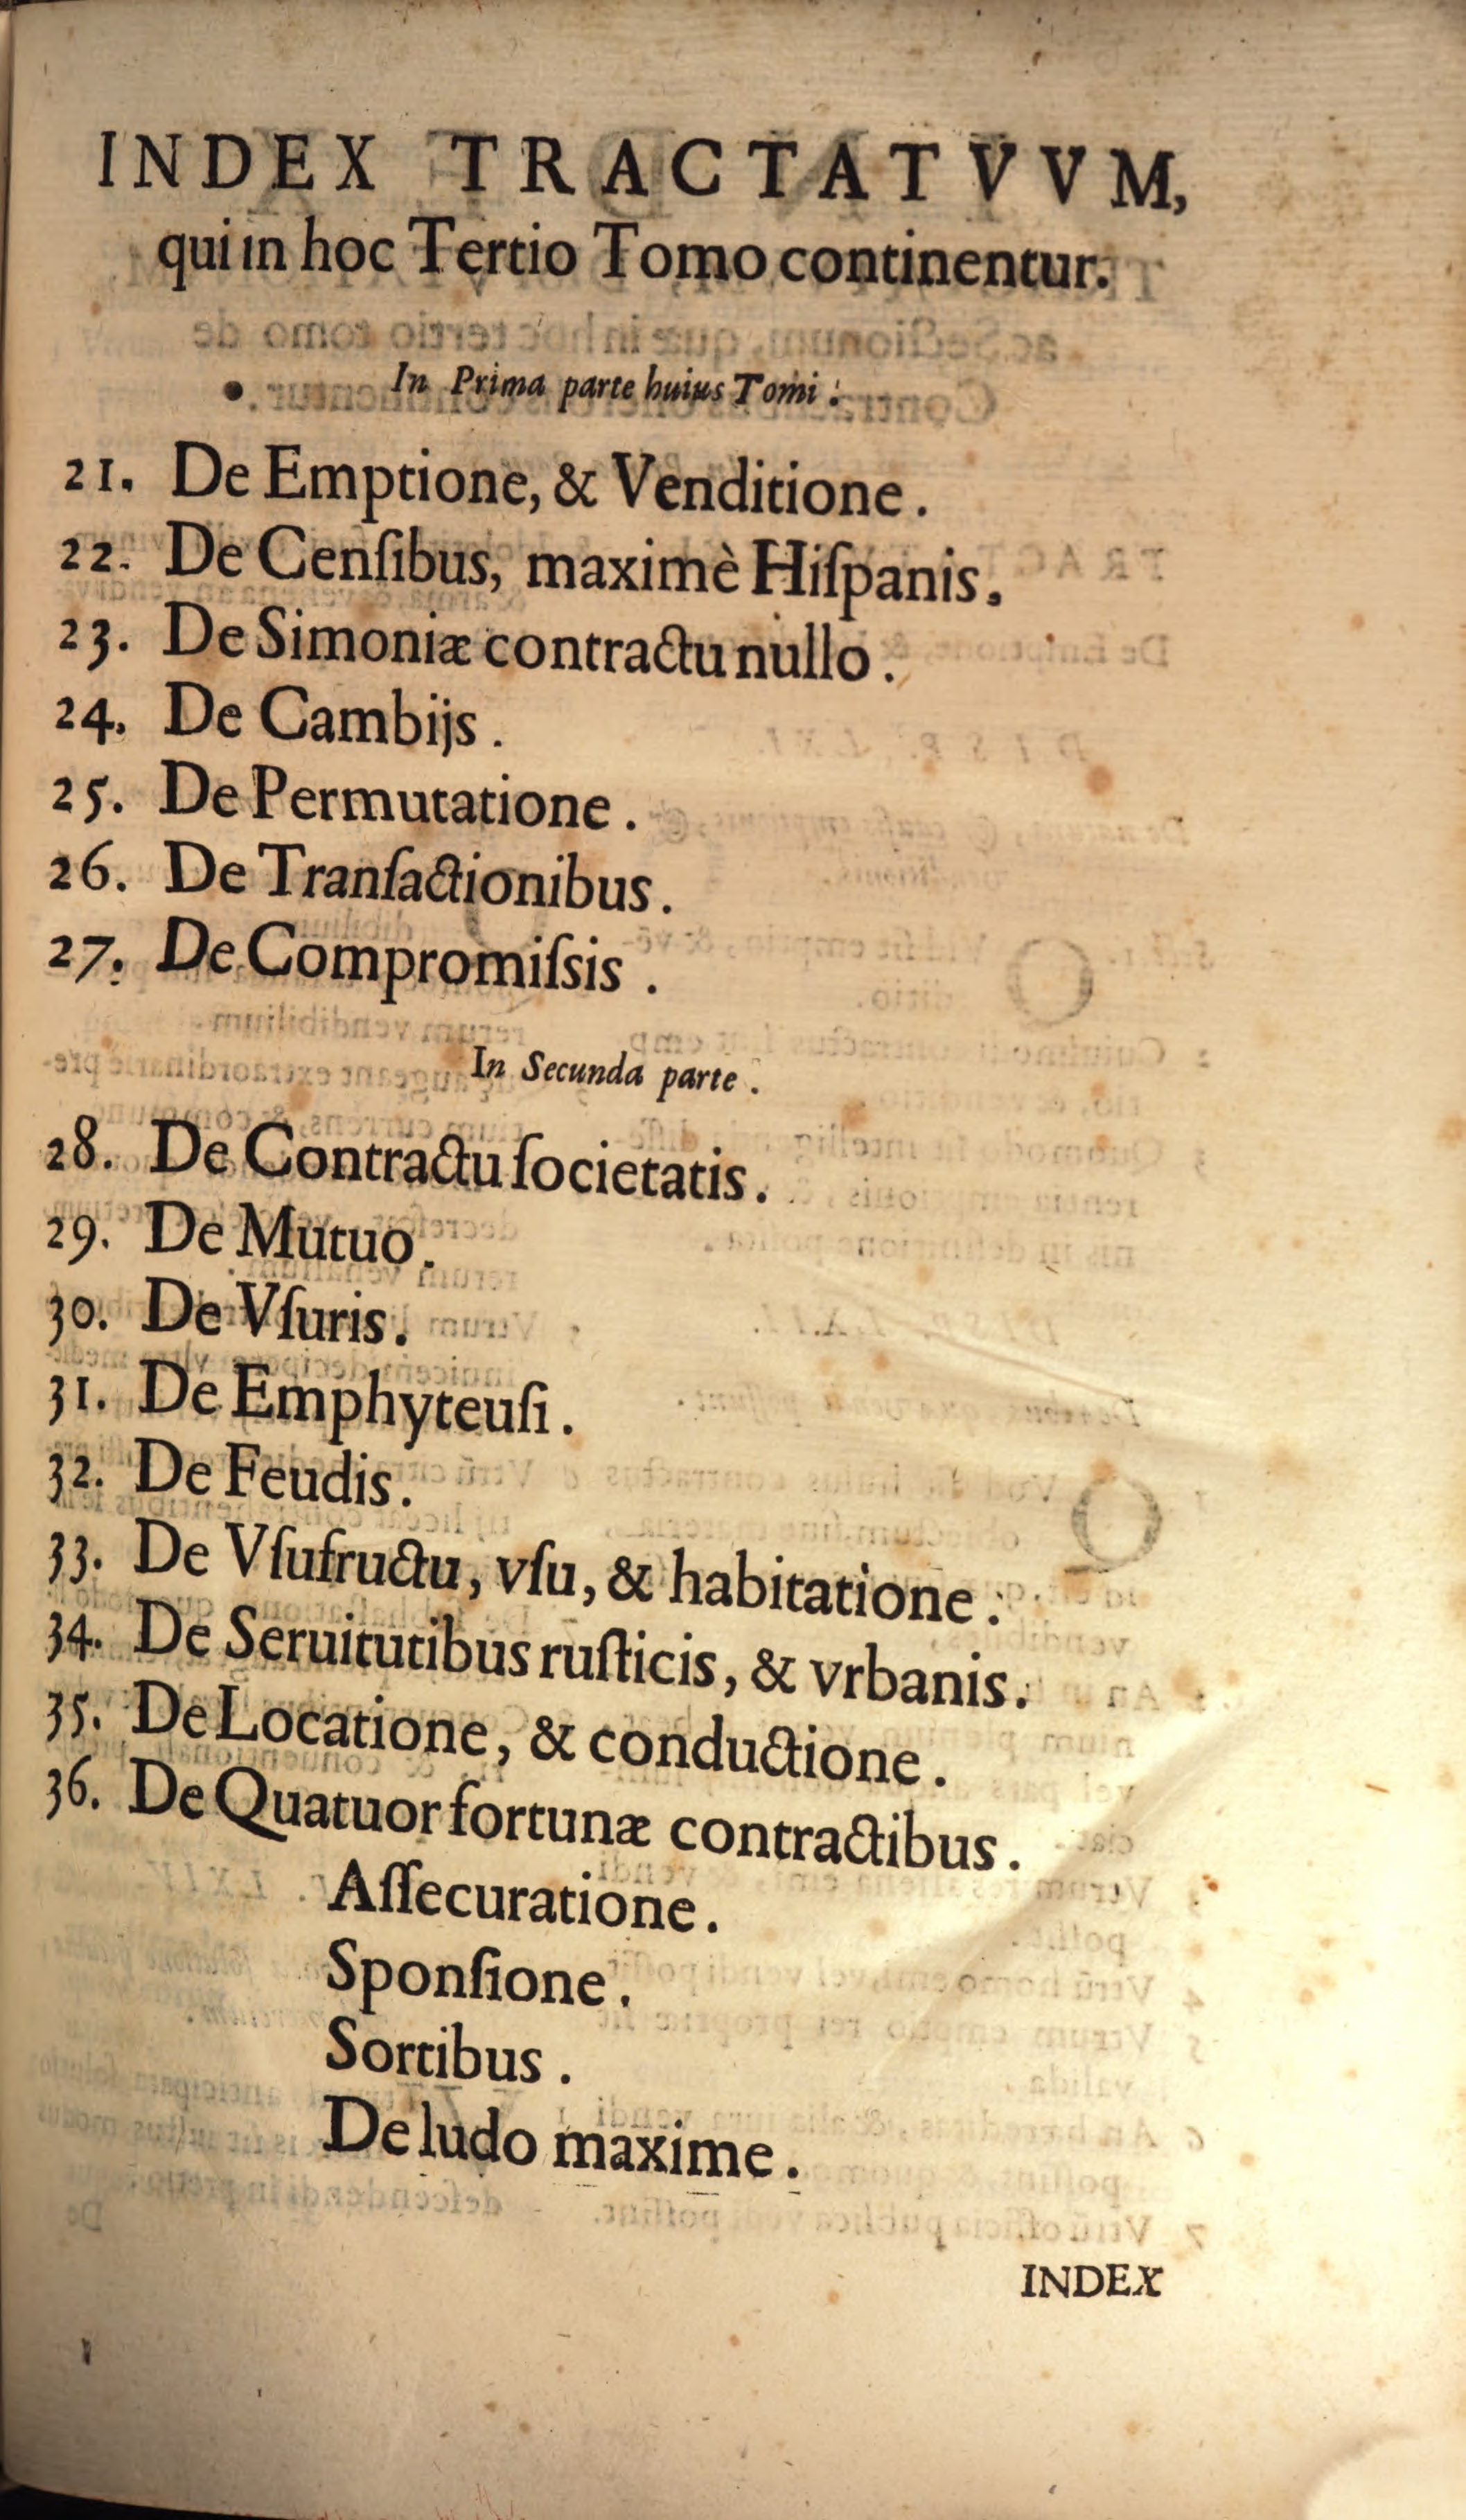 INDEX TRACTATVVM,
qui in hoc Tertio Tomo continentur.
In Prima parte huius Tomi.
21. De Emptione, & Venditione.
22. De Cenſibus, maximè Hiſpanis.
23. De Simoniæ contractu nullo.
24. De Cambijs.
25. De Permutatione.
26. De Tranſactionibus.
27. De Compromiſsis.
In Secunda parte.
28. De Contractu ſocietatis.
29. De Mutuo.
30. De Vſuris.
31. De Emphyteuſi.
32. De Feudis.
33. De Vſufructu, vſu, & habitatione.
34. De Seruitutibus ruſticis, & vrbanis.
35. De Locatione, & conductione.
36. De Quatuor fortunæ contractibus.
Aſſecuratione.
Sponſione.
Sortibus.
De ludo maxime.
INDEX